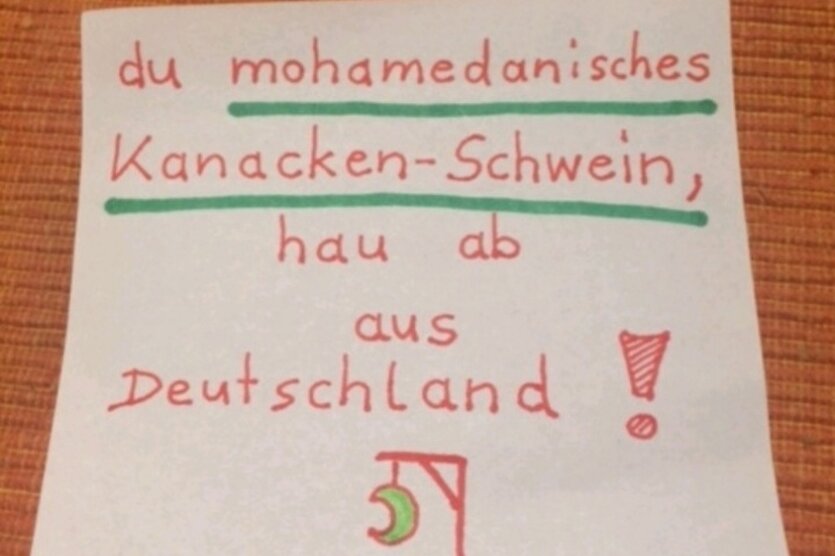 du mohamedanisches
Kanacken-Schwein,
hau ab
aus
Deutschland !